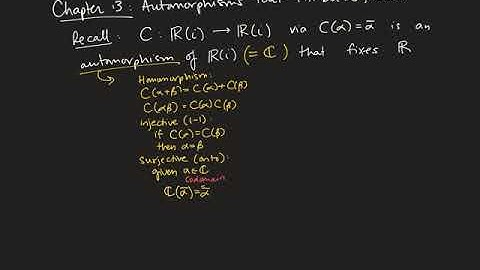 Chapter 13: Automorphisms
Recall: C: ℝ(i) → ℝ(i) via C(α)=ᾱ is an
automorphism of ℝ(i) (=ℂ) that fixes ℝ
Homomorphism:
C(α+β)=C(α)+C(β)
C(αβ)=C(α)C(β)
injective (1-1):
if C(α)=C(β)
then α=β
surjective (onto):
given α∈ℂ
codomain
ℂ(ᾱ)=